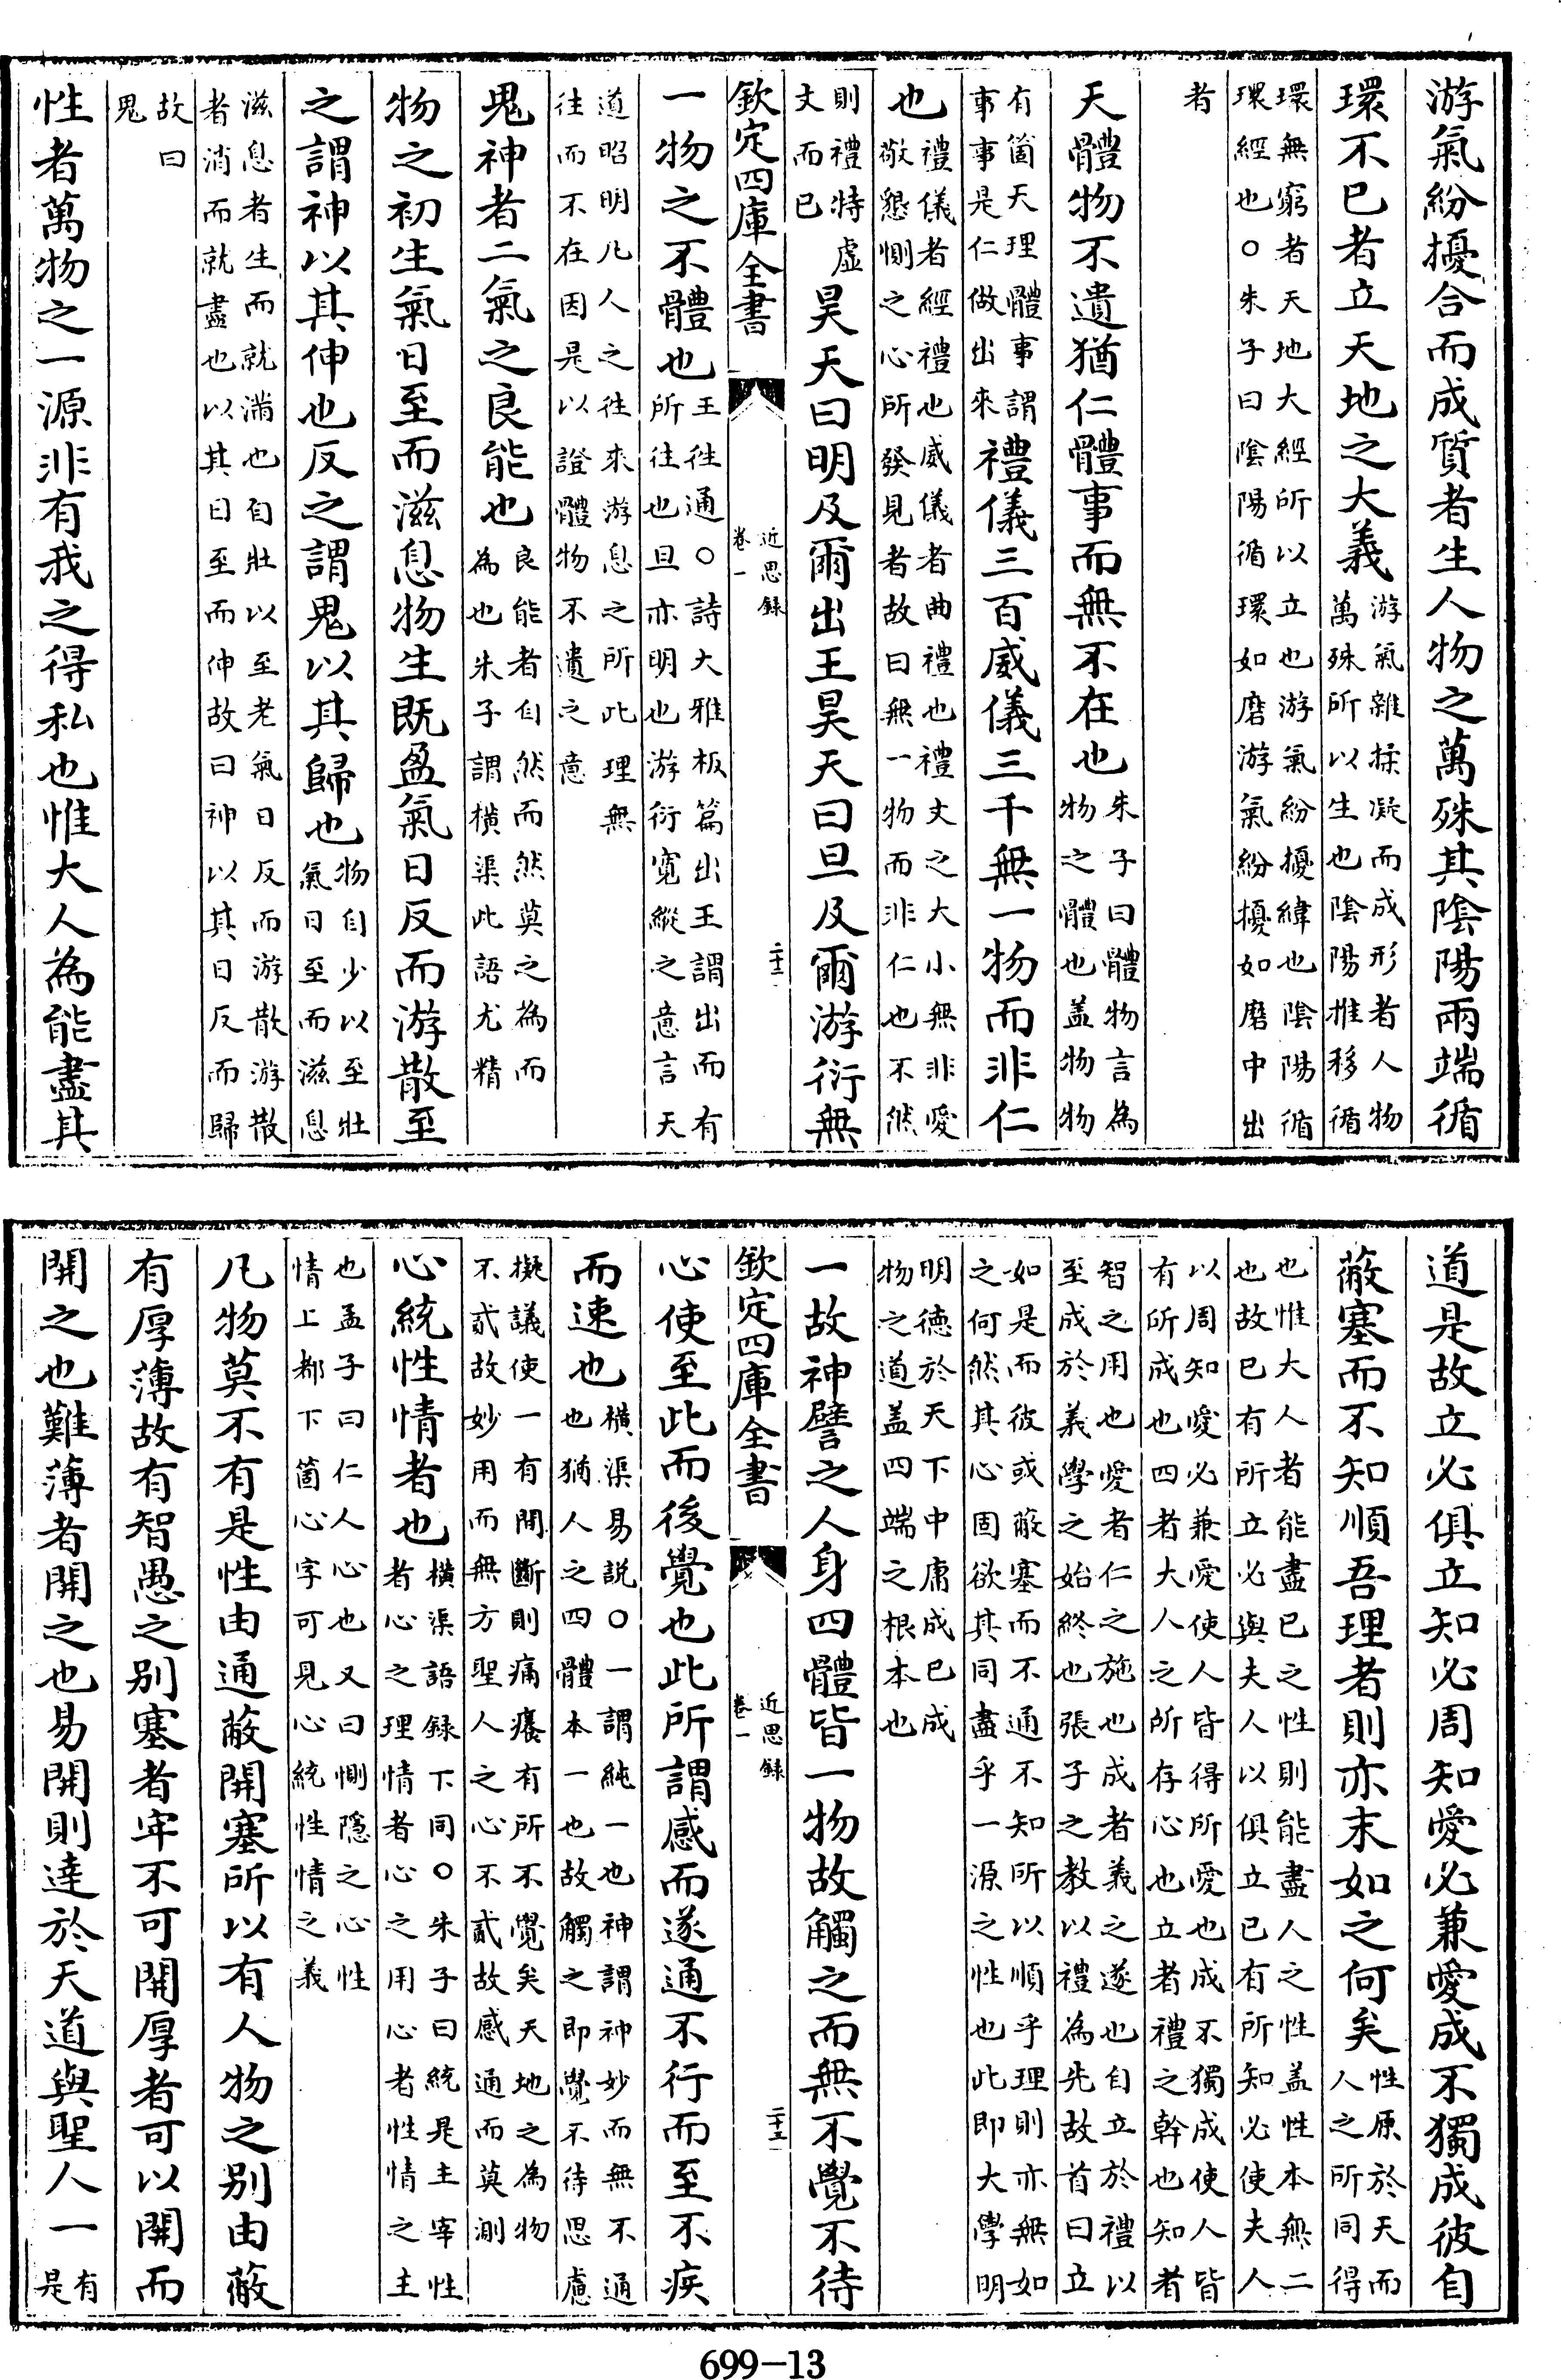 游氣紛擾合而成質者生人物之萬殊其陰陽兩端循
環不已者立天地之大義游氣雜揉凝而成形者人物萬殊所以生也陰陽推移循
環無窮者天地大經所以立也游氣紛擾緯也陰陽循環經也○朱子曰陰陽循環如磨游氣紛擾如磨中出
者
天體物不遺猶仁體事而無不在也朱子曰體物言為物之體也盖物物
有箇天理體事謂事事是仁做出來禮儀三百威儀三千無一物而非仁
也禮儀者經禮也威儀者曲禮也禮文之大小無非愛敬懇惻之心所發見者故曰無一物而非仁也不然
則禮特虛文而已昊天曰明及爾出王昊天曰旦及爾游衍無
欽定四庫全書 近思録 卷一 二十二
一物之不體也王往通○詩大雅板篇出王謂出而有所往也旦亦明也游衍寛縱之意言天
道昭明凡人之往來游息之所此理無往而不在因是以證體物不遺之意
鬼神者二氣之良能也良能者自然而然莫之為而為也朱子謂橫渠此語尤精
物之初生氣日至而滋息物生既盈氣日反而游散至
之謂神以其伸也反之謂鬼以其歸也物自少以至壯氣日至而滋息
滋息者生而就滿也自壯以至老氣日反而游散游散者消而就盡也以其日至而伸故曰神以其日反而歸
故曰鬼
性者萬物之一源非有我之得私也惟大人為能盡其
道是故立必俱立知必周知愛必兼愛成不獨成彼自
蔽塞而不知順吾理者則亦末如之何矣性原於天而人之所同得
也惟大人者能盡已之性則能盡人之性盖性本無二也故已有所立必與夫人以俱立已有所知必使夫人
以周知愛必兼愛使人皆得所愛也成不獨成使人皆有所成也四者大人之所存心也立者禮之幹也知者
智之用也愛者仁之施也成者義之遂也自立於禮以至成於義學之始終也張子之教以禮為先故首曰立
如是而彼或蔽塞而不通不知所以順乎理則亦無如之何然其心固欲其同盡乎一源之性也此即大學明
明德於天下中庸成已成物之道盖四端之根本也
一故神譬之人身四體皆一物故觸之而無不覺不待
欽定四庫全書 近思録 卷一 二十三
心使至此而後覺也此所謂感而遂通不行而至不疾
而速也橫渠易説○一謂純一也神謂神妙而無不通也猶人之四體本一也故觸之即覺不待思慮
擬議使一有間斷則痛癢有所不覺矣天地之為物不貳故妙用而無方聖人之心不貳故感通而莫測
心統性情者也橫渠語録下同○朱子曰統是主宰性者心之理情者心之用心者性情之主
也孟子曰仁人心也又曰惻隱之心性情上都下箇心字可見心統性情之義
凡物莫不有是性由通蔽開塞所以有人物之别由蔽
有厚薄故有智愚之别塞者牢不可開厚者可以開而
開之也難薄者開之也易開則達於天道與聖人一有是
699-13